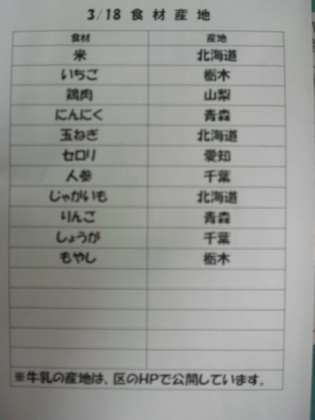 3/18 食材産地
食材 産地
米 北海道
いちご 栃木
鶏肉 山梨
にんにく 青森
玉ねぎ 北海道
セロリ 愛知
人参 千葉
じゃがいも 北海道
りんご 青森
しょうが 千葉
もやし 栃木
※牛乳の産地は、区のHPで公開しています。